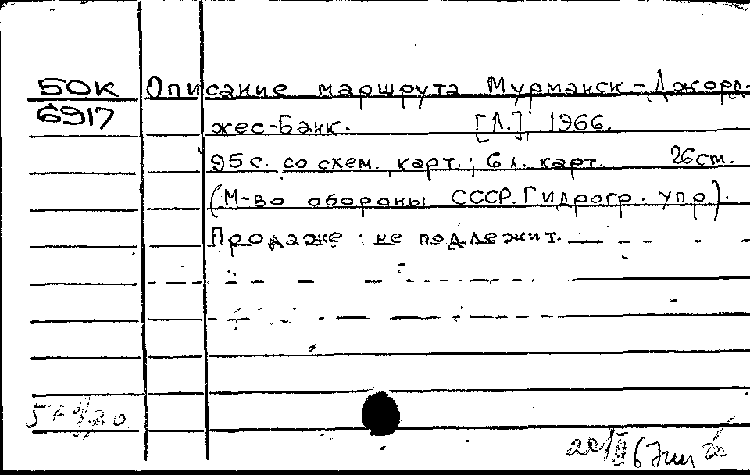 БОК Описание маршрута Мурманск-Джорд-
6917 жес-Банк. [Л.] 1966.
95 с. со схем. карт.; 6 л. карт. 26 см.
(М-во обороны СССР. Гидрогр. упр.).
Продаже не подлежит.